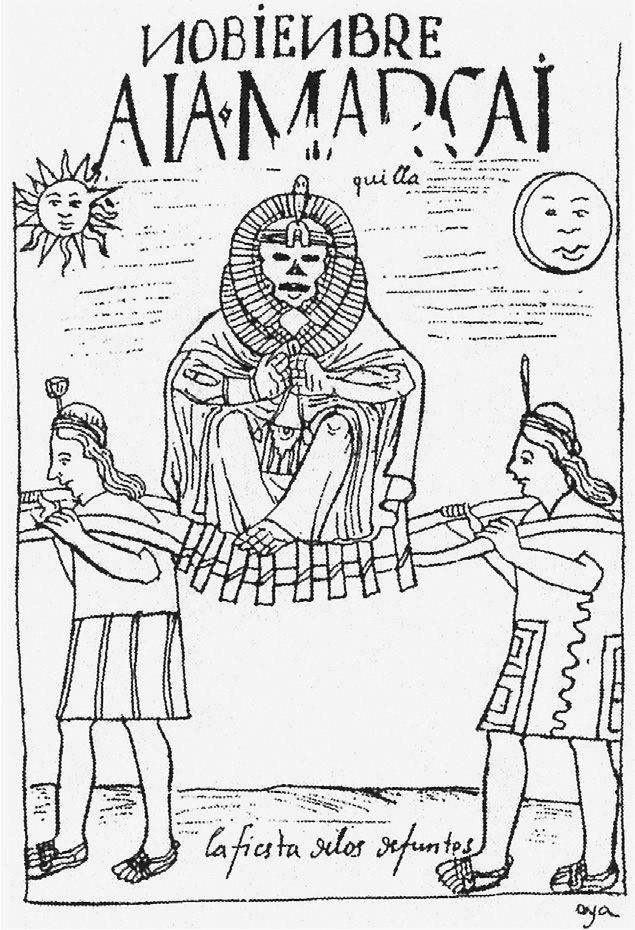 NOBIENBRE
AIA·MARCAI
quilla
la fiesta delos defuntos
aya